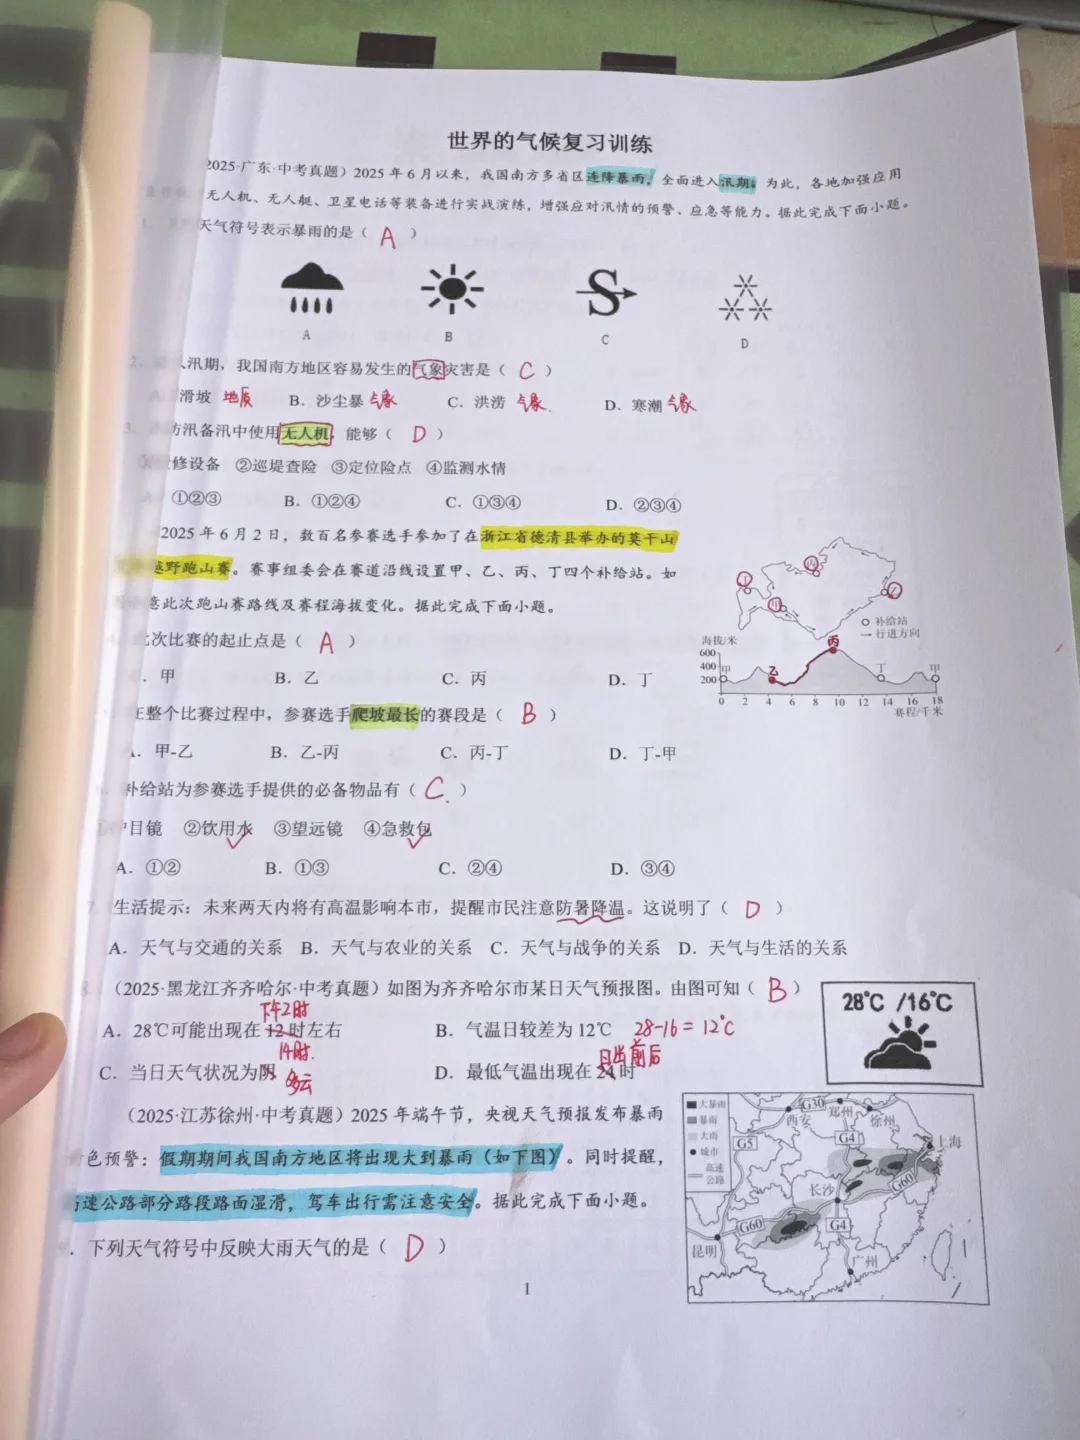 世界的气候复习训练
2025·广东·中考真题）2025 年 6 月以来，我国南方多省区连降暴雨，全面进入汛期。为此，各地加强应用
无人机、无人艇、卫星电话等装备进行实战演练，增强应对汛情的预警、应急等能力。据此完成下面小题。
天气符号表示暴雨的是（ A ）
A B C D
2. 入汛期，我国南方地区容易发生的气象灾害是（ C ）
滑坡 地质 B. 沙尘暴 气象 C. 洪涝 气象 D. 寒潮 气象
3. 防汛备汛中使用无人机，能够（ D ）
修设备 ②巡堤查险 ③定位险点 ④监测水情
A ①②③ B. ①②④ C. ①③④ D. ②③④
2025 年 6 月 2 日，数百名参赛选手参加了在浙江省德清县举办的莫干山
越野跑山赛。赛事组委会在赛道沿线设置甲、乙、丙、丁四个补给站。如
意此次跑山赛路线及赛程海拔变化。据此完成下面小题。
丁 丙 甲 乙
补给站
行进方向
海拔/米
600
400
200
甲 乙 丙 丁 甲
0 2 4 6 8 10 12 14 16 18
赛程/千米
此次比赛的起止点是（ A ）
. 甲 B. 乙 C. 丙 D. 丁
在整个比赛过程中，参赛选手爬坡最长的赛段是（ B ）
A. 甲-乙 B. 乙-丙 C. 丙-丁 D. 丁-甲
补给站为参赛选手提供的必备物品有（ C ）
护目镜 ②饮用水 ③望远镜 ④急救包
A. ①② B. ①③ C. ②④ D. ③④
7. 生活提示：未来两天内将有高温影响本市，提醒市民注意防暑降温。这说明了（ D ）
A. 天气与交通的关系 B. 天气与农业的关系 C. 天气与战争的关系 D. 天气与生活的关系
8. （2025·黑龙江齐齐哈尔·中考真题）如图为齐齐哈尔市某日天气预报图。由图可知（ B ）
下午2时
A. 28℃可能出现在 12 时左右 B. 气温日较差为 12℃ 28-16=12℃
14时. 日出前后
C. 当日天气状况为阴 多云 D. 最低气温出现在 24 时
28℃ /16℃
（2025·江苏徐州·中考真题）2025 年端午节，央视天气预报发布暴雨
色预警：假期期间我国南方地区将出现大到暴雨（如下图）。同时提醒，
高速公路部分路段路面湿滑，驾车出行需注意安全。据此完成下面小题。
. 下列天气符号中反映大雨天气的是（ D ）
大暴雨
暴雨
大雨
城市
高速
公路
西安 G30 郑州 徐州
G5 G4 上海
长沙 G60
G60 G4
昆明 广州
1